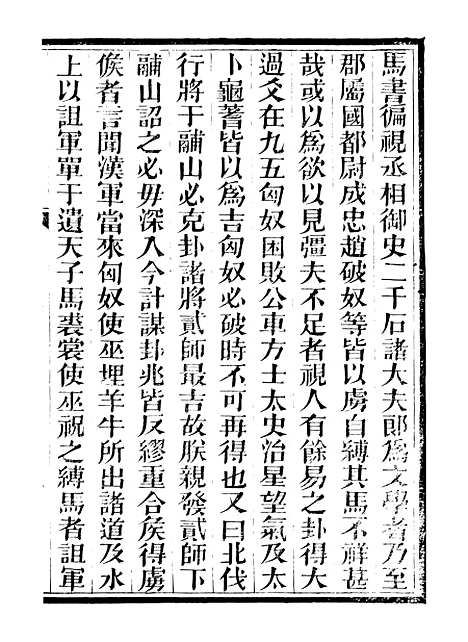 馬書徧視丞相御史二千石諸大夫郎爲文學者乃至
郡屬國都尉成忠趙破奴等皆以虜自縛其馬不祥甚
哉或以爲欲以見彊夫不足者視人有餘易之卦得大
過爻在九五匈奴困敗公車方士太史治星望氣及太
卜龜蓍皆以爲吉匈奴必破時不可再得也又曰北伐
行將于鬴山必克卦諸將貳師最吉故朕親發貳師下
鬴山詔之必毋深入今計謀卦兆皆反繆重合矦得虜
候者言聞漢軍當來匈奴使巫埋羊牛所出諸道及水
上以詛軍單于遺天子馬裘裳使巫祝之縛馬者詛軍